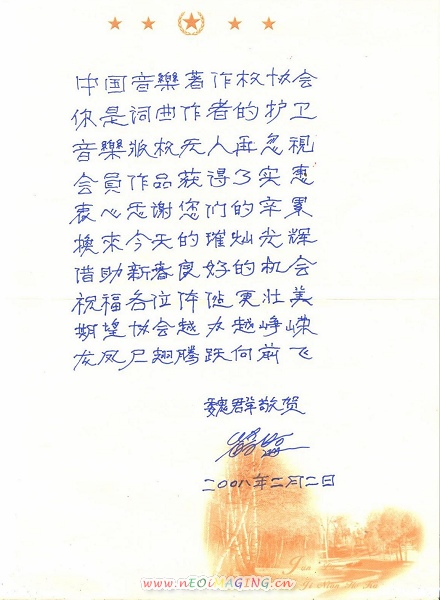 中国音樂著作权协会
你是词曲作者的护卫
音樂版权无人再忽視
会員作品获得了实惠
衷心感谢您们的辛累
換來今天的璀灿光辉
借助新春良好的机会
祝福各位体健更壮美
期望协会越办越峥嵘
龙凤展翅腾跃向前飞
魏群敬贺
二〇〇八年二月二日
www.nEOiMAGING.cn